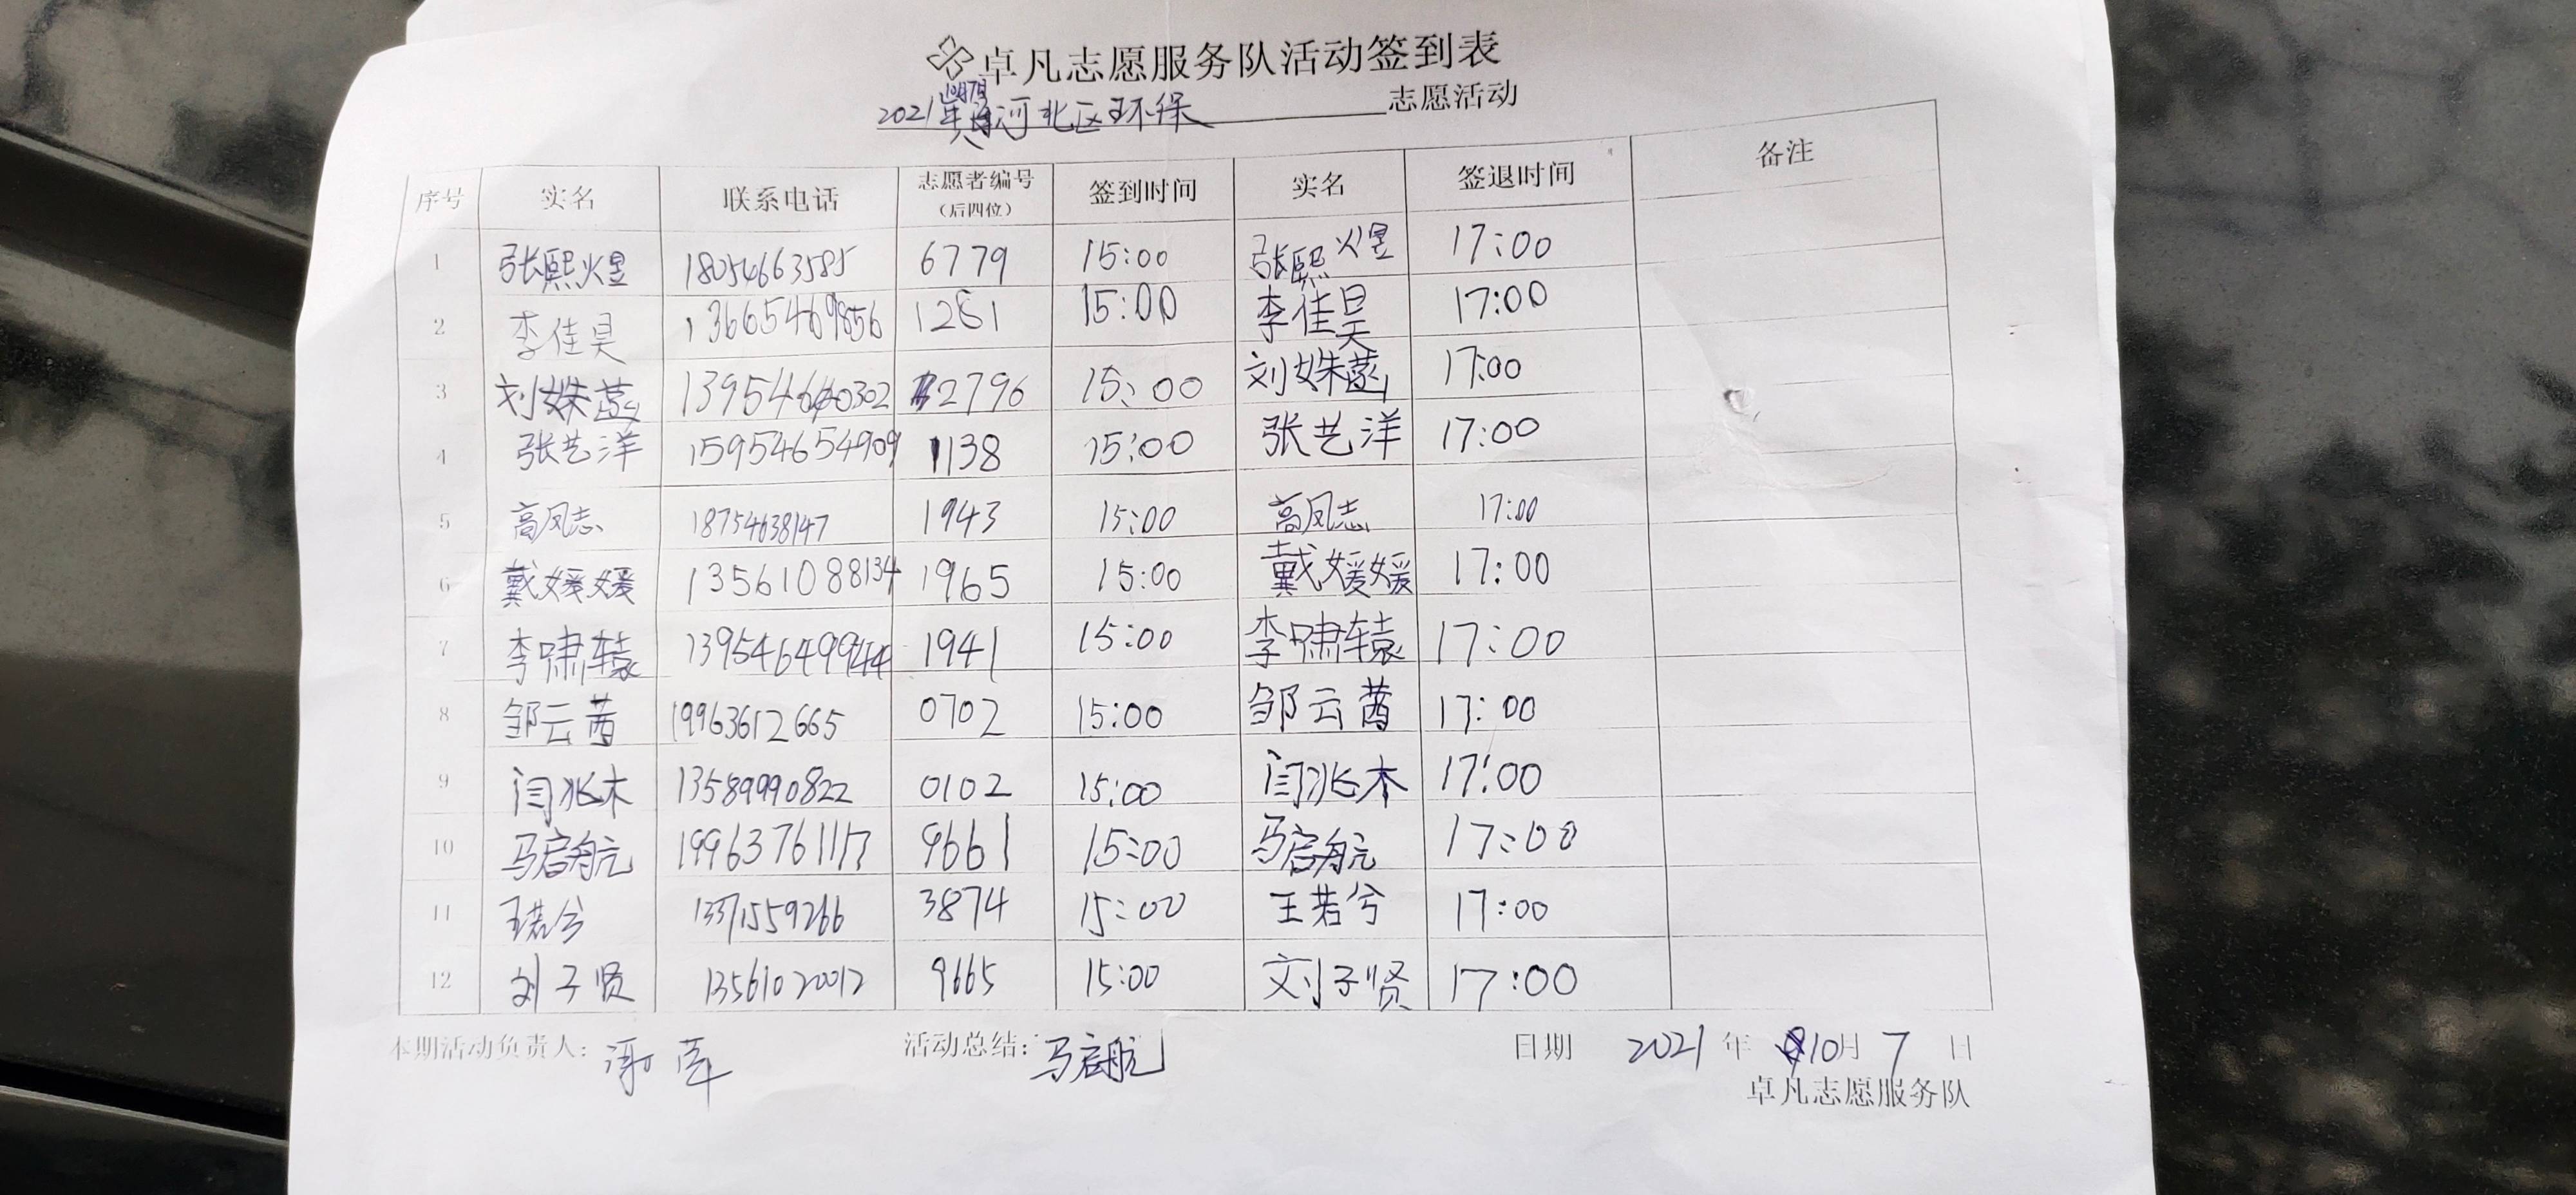 卓凡志愿服务队活动签到表
2021年10月7日河北区环保 志愿活动
序号 实名 联系电话 志愿者编号（后四位） 签到时间 实名 签退时间 备注
1 张熙煜 18054663585 6779 15:00 张熙煜 17:00
2 李佳昊 13665469856 1281 15:00 李佳昊 17:00
3 刘姝菡 13954640302 2796 15:00 刘姝菡 17:00
4 张艺洋 15954654909 1138 15:00 张艺洋 17:00
5 高凤志 18754638147 1943 15:00 高凤志 17:00
6 戴媛媛 13561088134 1965 15:00 戴媛媛 17:00
7 李啸辕 13954649944 1941 15:00 李啸辕 17:00
8 邹云茜 19963612665 0702 15:00 邹云茜 17:00
9 闫兆木 13589990822 0102 15:00 闫兆木 17:00
10 马启航 19963761117 9661 15:00 马启航 17:00
11 王若兮 13371559266 3874 15:00 王若兮 17:00
12 刘子贤 13561020012 9665 15:00 刘子贤 17:00
本期活动负责人： 活动总结：马启航 日期 2021 年 10月 7 日
卓凡志愿服务队